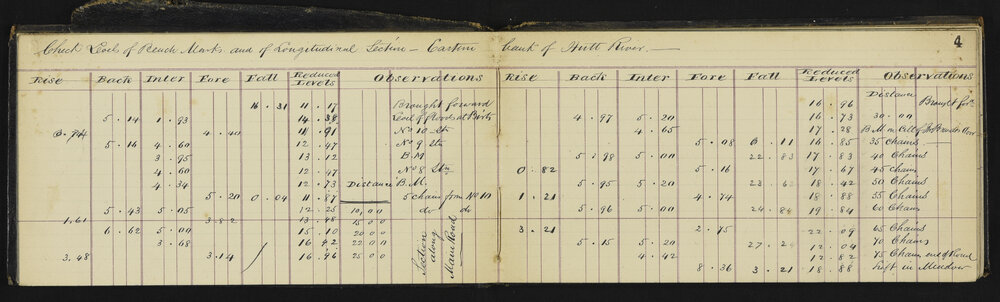 Check Level of Bench Marks and of Longitudinal Section — Eastern bank of Hutt River. — 4
Rise Back Inter Fore Fall Reduced Levels Observations Rise Back Inter Fore Fall Reduced Levels Observations
Distance
16.31 11.17 Brought forward 16.96 Brought for.
5.14 1.93 14.38 Level of 4.97 5.20 16.73 30.00
0.74 4.40 11.91 No 10 Stn 4.65 17.28 B.M.
5.16 4.60 12.47 No 9 Stn 5.08 0.11 16.85 35 Chains
3.95 13.12 B.M 5.98 5.00 22.83 17.83 40 Chains
4.60 12.47 No 8 Stn 0.82 5.16 17.67 45 Chains
4.34 12.73 Distance B.M. 5.95 5.20 18.42 50 Chains
5.20 0.04 11.87 5 chains from No 10 1.21 4.74 18.88 55 Chains
5.43 5.05 12.25 10,00 do do 5.96 5.00 24.84 19.84 60 Chains
1.61 3.82 13.48 15 00
6.62 5.00 15.10 20 00 3.21 2.75 22.09 65 Chains
3.68 16.42 22 00 5.15 5.20 12.04 70 Chains
3.48 3.14 16.96 25 00 4.42 12.82 75 Chains end of Road
8.36 3.21 18.88 left in Meadow
Section along Main Road